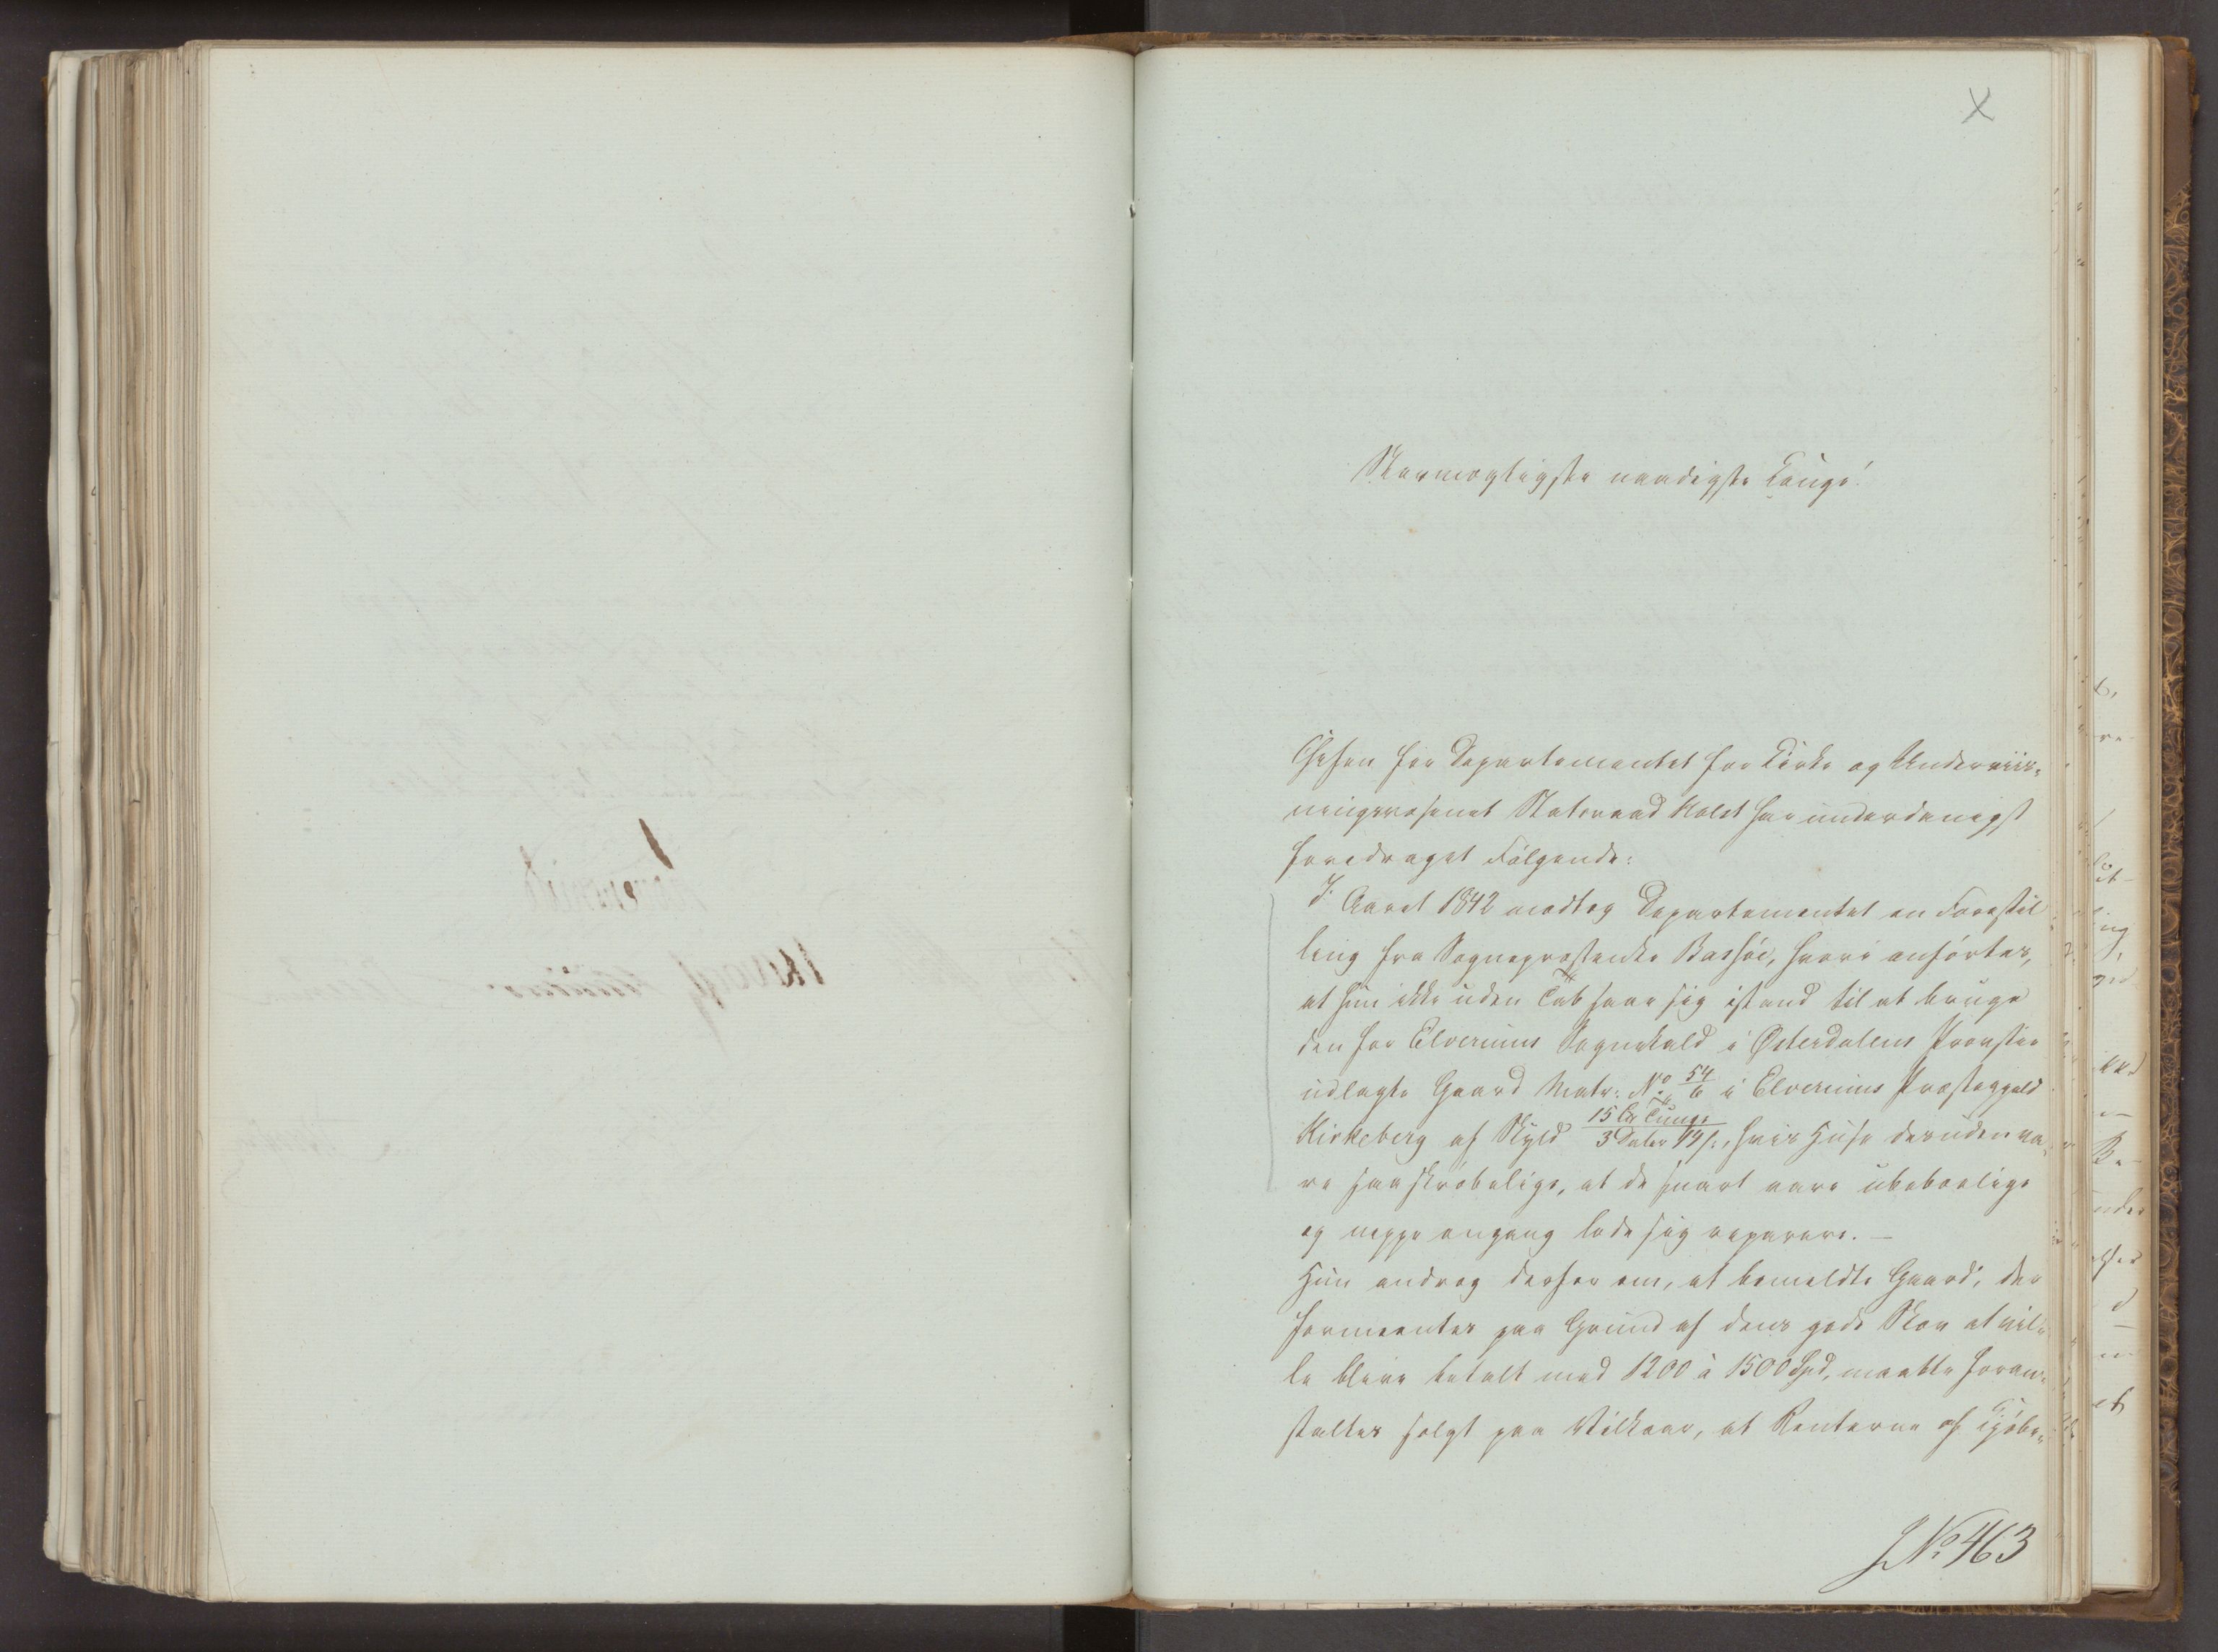 X
Stormægtigste naadigste Konge!
Chefen for Departementet for Kirke og Underviis-
ningsvæsenet Statsraad Holst har underdanigst
foredraget Følgende:
I Aaret 1842 modtog Departementet en Forestil
ling fra Sognepræstenke Bassøe, hvori anførtes,
at hun ikke uden Tab saae sig istand til at bruge
den for Elverums Sognekald i Østerdalens Provstie
udlagte Gaard Matr: No 54/6 i Elverums Præstegjeld
Kirkeberg af Skyld 15 Tunge / 3 Daler, hvis Huse desuden va-
re saa skrøbelige, at de snart vare ubeboelige
og neppe engang lode sig reparere. —
Hun androg derfor om, at bemeldte Gaard, der
formeentes paa Grund af dens gode Skov at vil-
le blive betalt med 1200 à 1500 Spd, maatte foran-
staltes solgt paa Vilkaar, at Renterne af Kjøbe-
J No 463